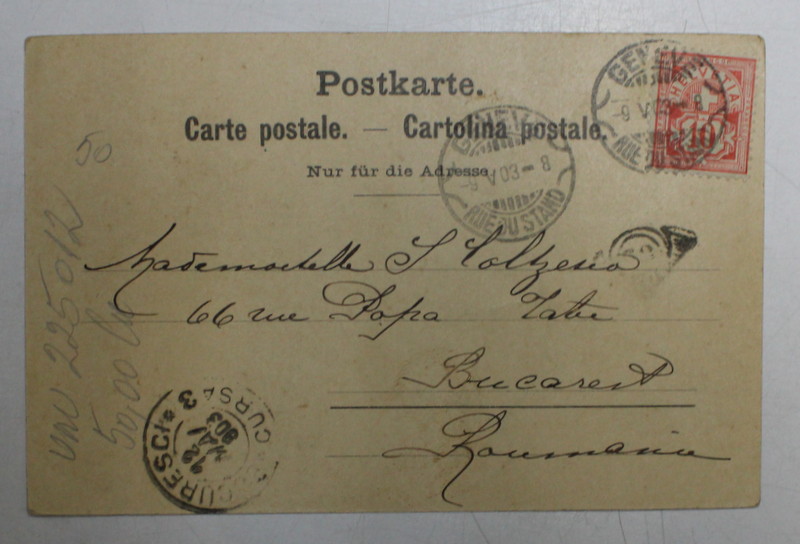 Postkarte.
Carte postale. — Cartolina postale.
Nur für die Adresse.
Mademoiselle S Coltzesco
66 rue Popa Tatu
Bucarest
Roumanie
50
UNU 225 012
50,00 lei
HELVETIA
10
GENÈVE
RUE DU STAND
GENÈVE
RUE DU STAND
BUCURESCI
CURSA 3
MAI
903